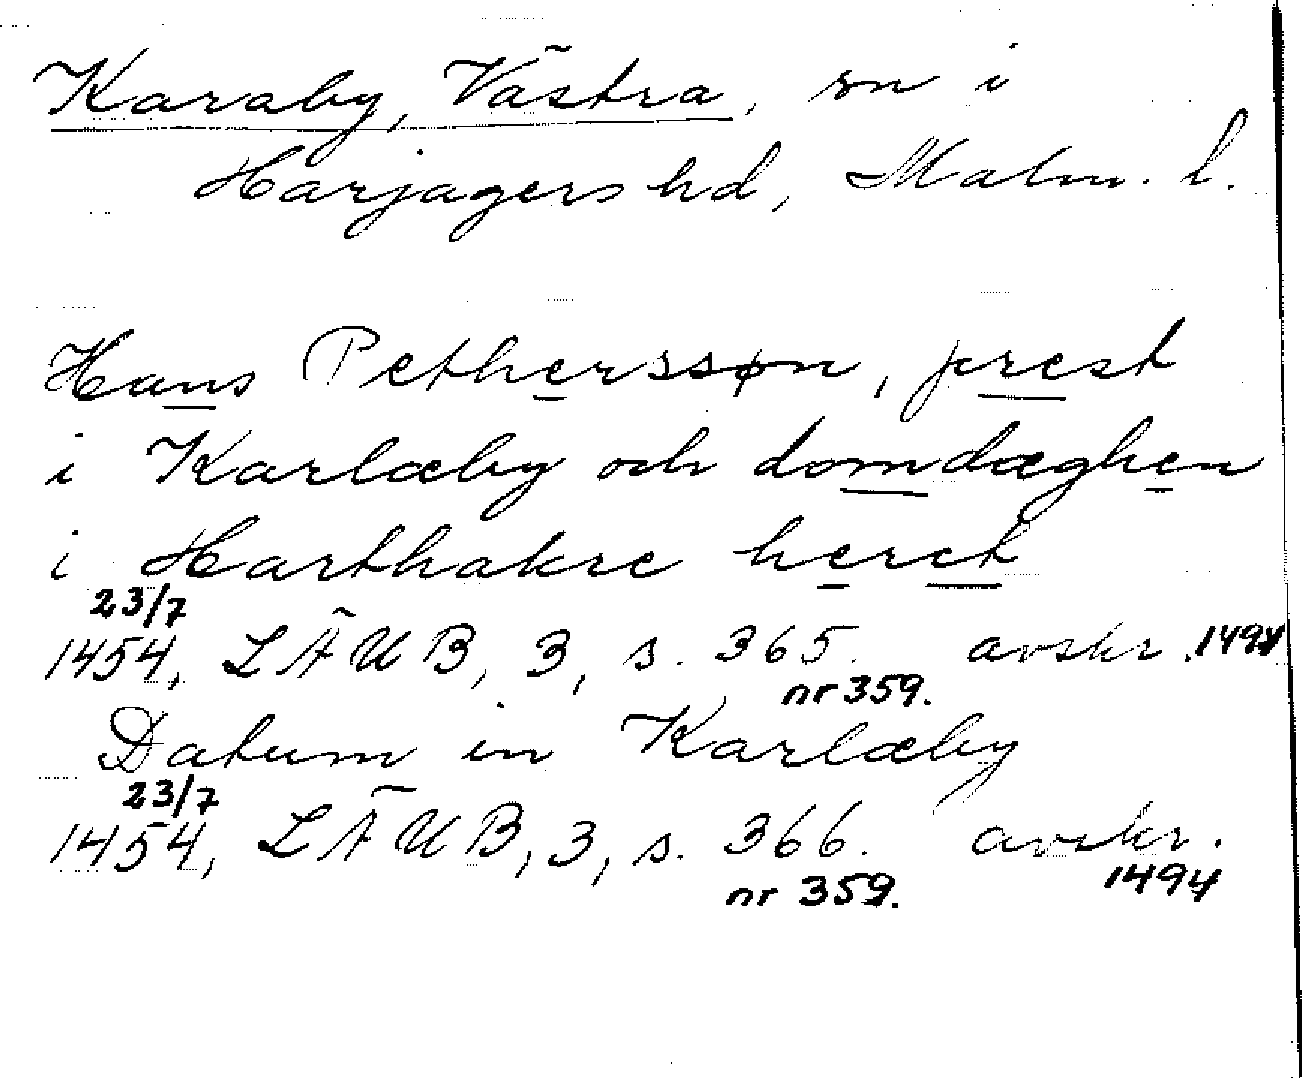 Karaby, Västra, sn i
Harjagers hd, Malm. l.
Hans Pethersson, prest
i Karlæby och domdæghen
i Harthakre heret
23/7
1454, LÄUB, 3, s. 365. avskr. 1494
nr 359.
Datum in Karlæby
23/7
1454, LÄUB, 3, s. 366. avskr.
nr 359. 1494